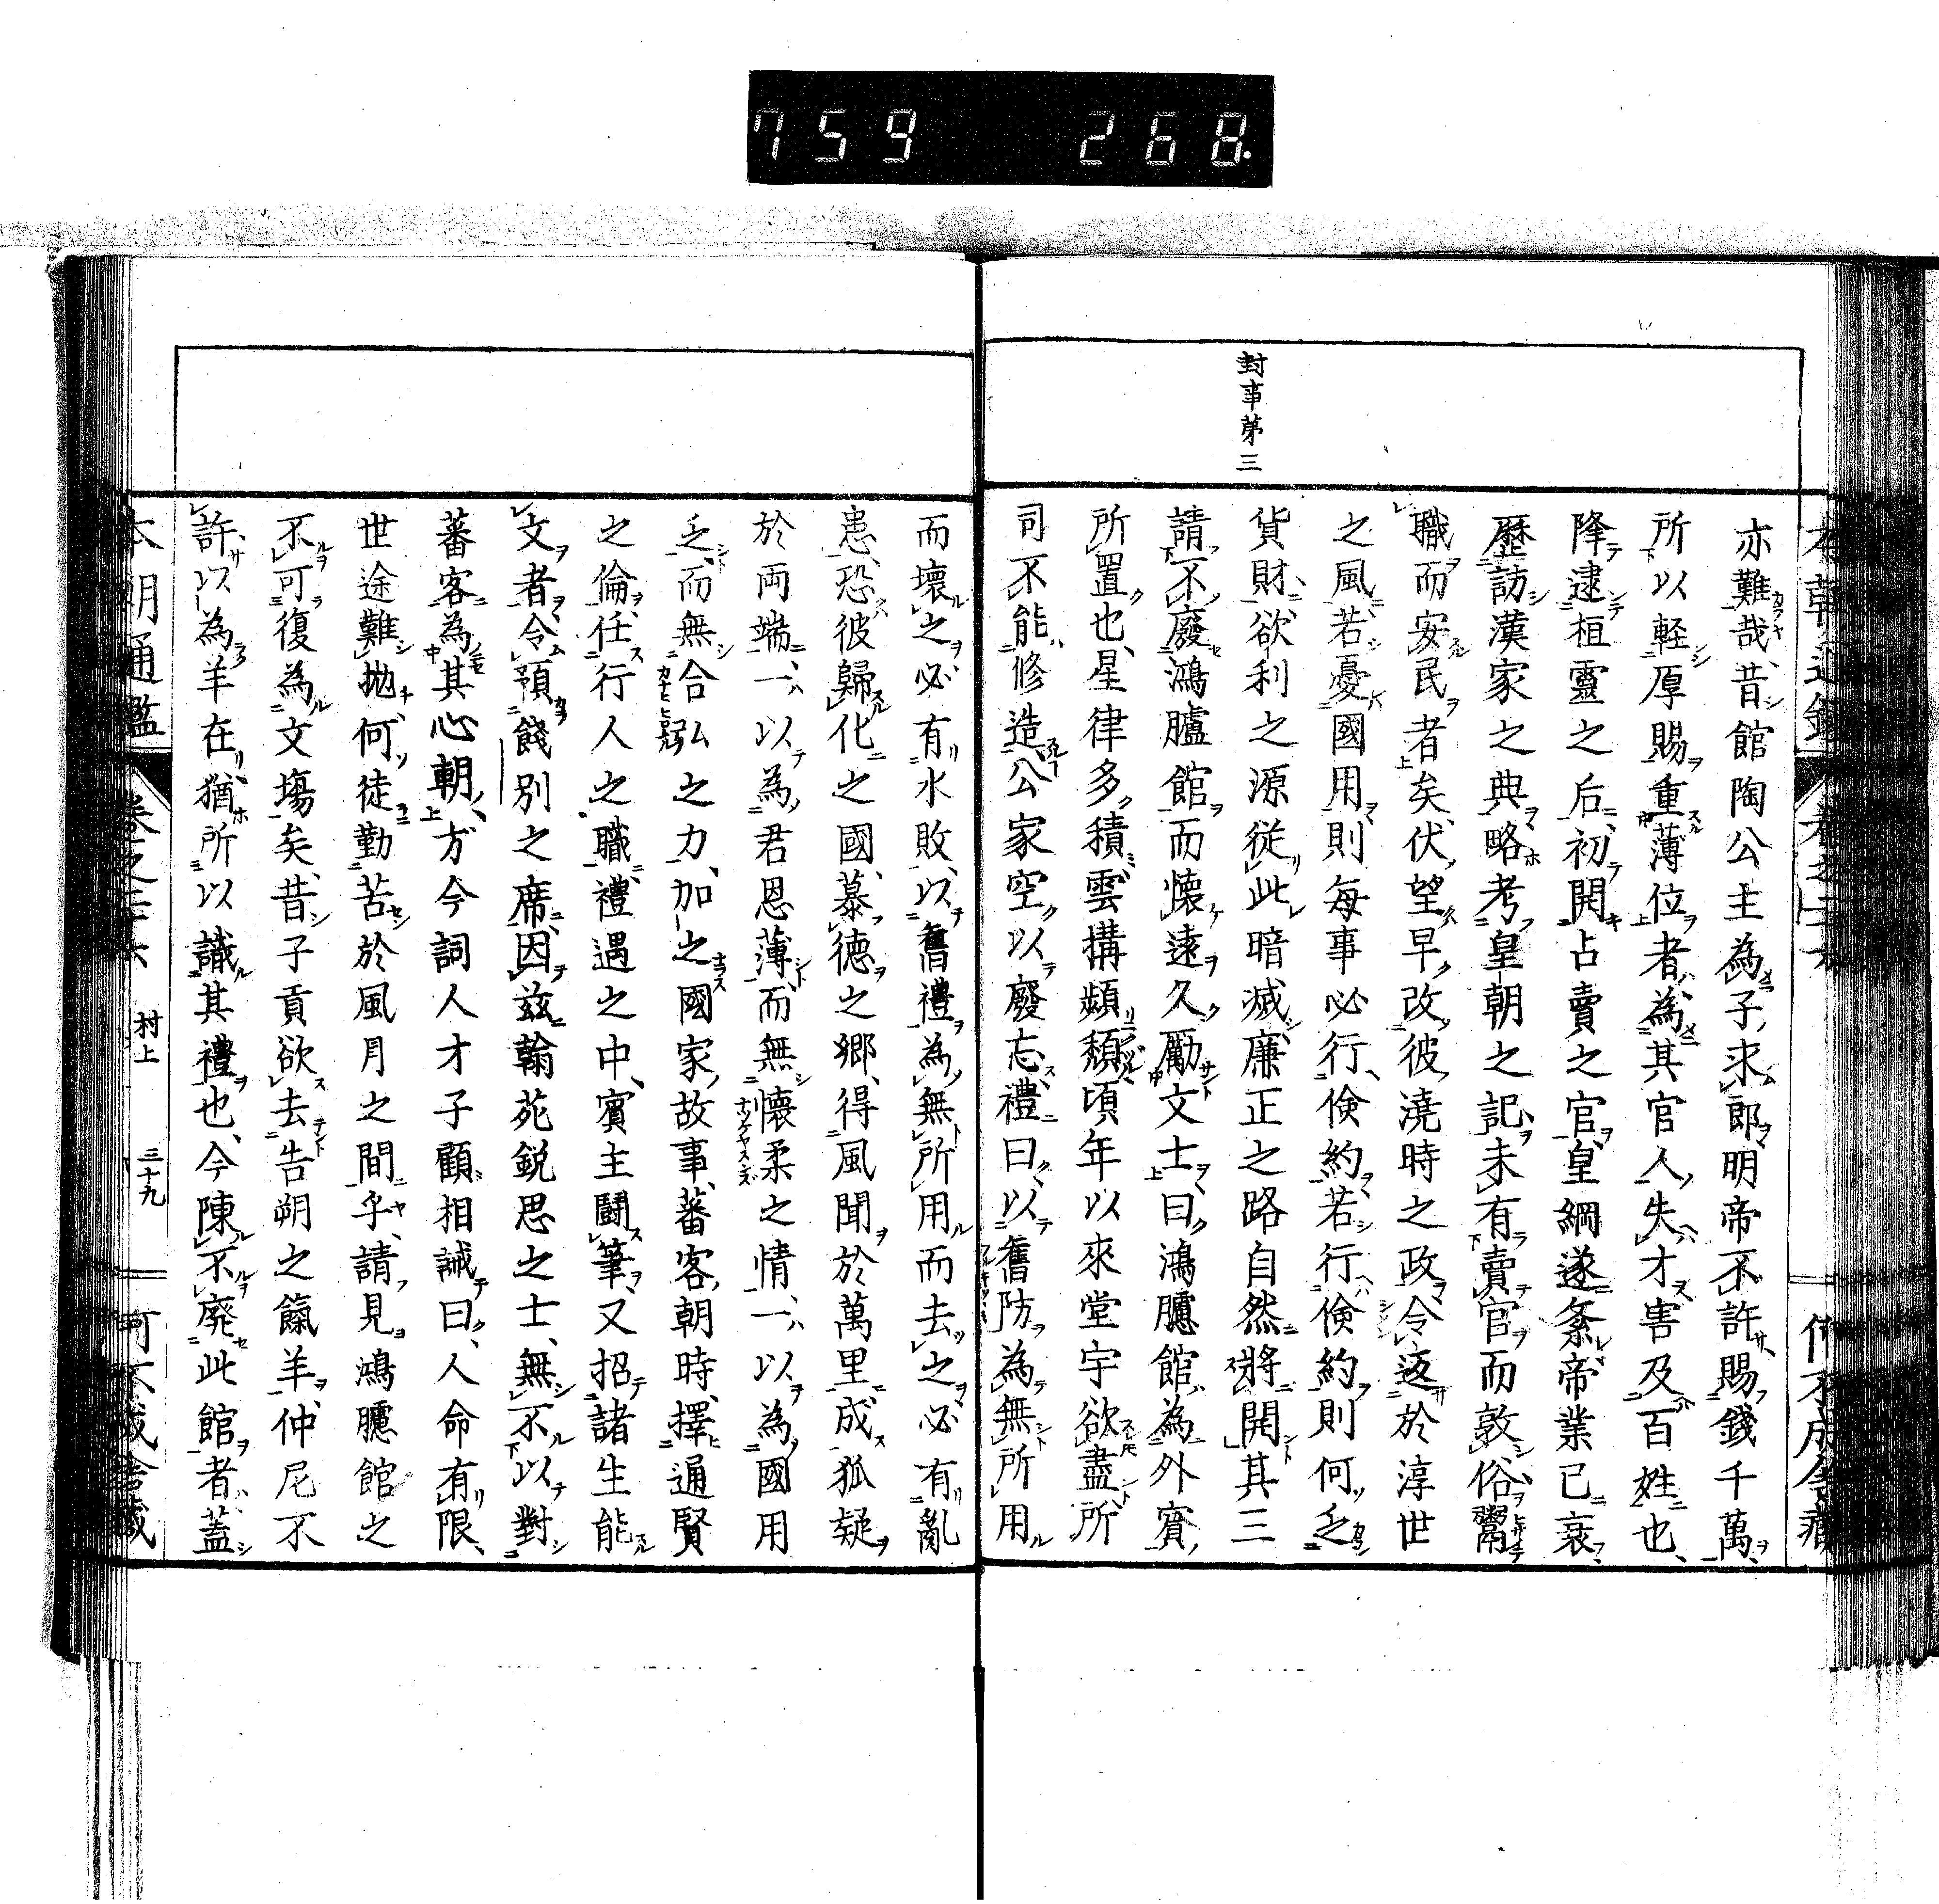 759 268.
封事第三
亦難哉、昔館陶公主為子求郎、明帝不許、賜錢千萬、
所以軽厚賜重薄位者、為其官人失才害及百姓也、
降逮桓靈之后、初開占賣之官、皇綱遂紊、帝業已衰、
歷訪漢家之典略、考皇朝之記、未有賣官而敦俗、鬻
職而安民者矣、伏望早改彼澆時之政、令返於淳世
之風、若憂國用、則每事必行倹約、若行倹約則何乏
貨財、欲利之源従此暗滅、廉正之路自然將開、其三
請不廢鴻臚館而懐遠久勵文士曰、鴻臚館為外賓
所置也、星律多積、雲搆頻頽、頃年以來堂宇欲盡、所
司不能修造、公家空以廢忘、禮曰、以舊防為無所用
而壊之必有水敗、以舊禮為無所用而去之必有亂
患、恐彼歸化之國、慕徳之郷、得風聞於萬里、成狐疑
於両端、一以為君恩薄而無懐柔之情、一以為國用
乏而無合弘之力、加之國家故事、蕃客朝時、擇通賢
之倫、任行人之職、禮遇之中、賓主闘筆、又招諸生能
文者、令預餞別之席、因茲翰苑鋭思之士、無不以對
蕃客為其心朝、方今詞人才子顧相誡曰、人命有限、
世途難拋、何徒勤苦於風月之間乎、請見鴻臚館之
不可復為文塲矣、昔子貢欲去告朔之餼羊、仲尼不
許、以為羊在猶所以識其禮也、今陳不廃此館者、蓋
本朝通鑑 村上 三十九